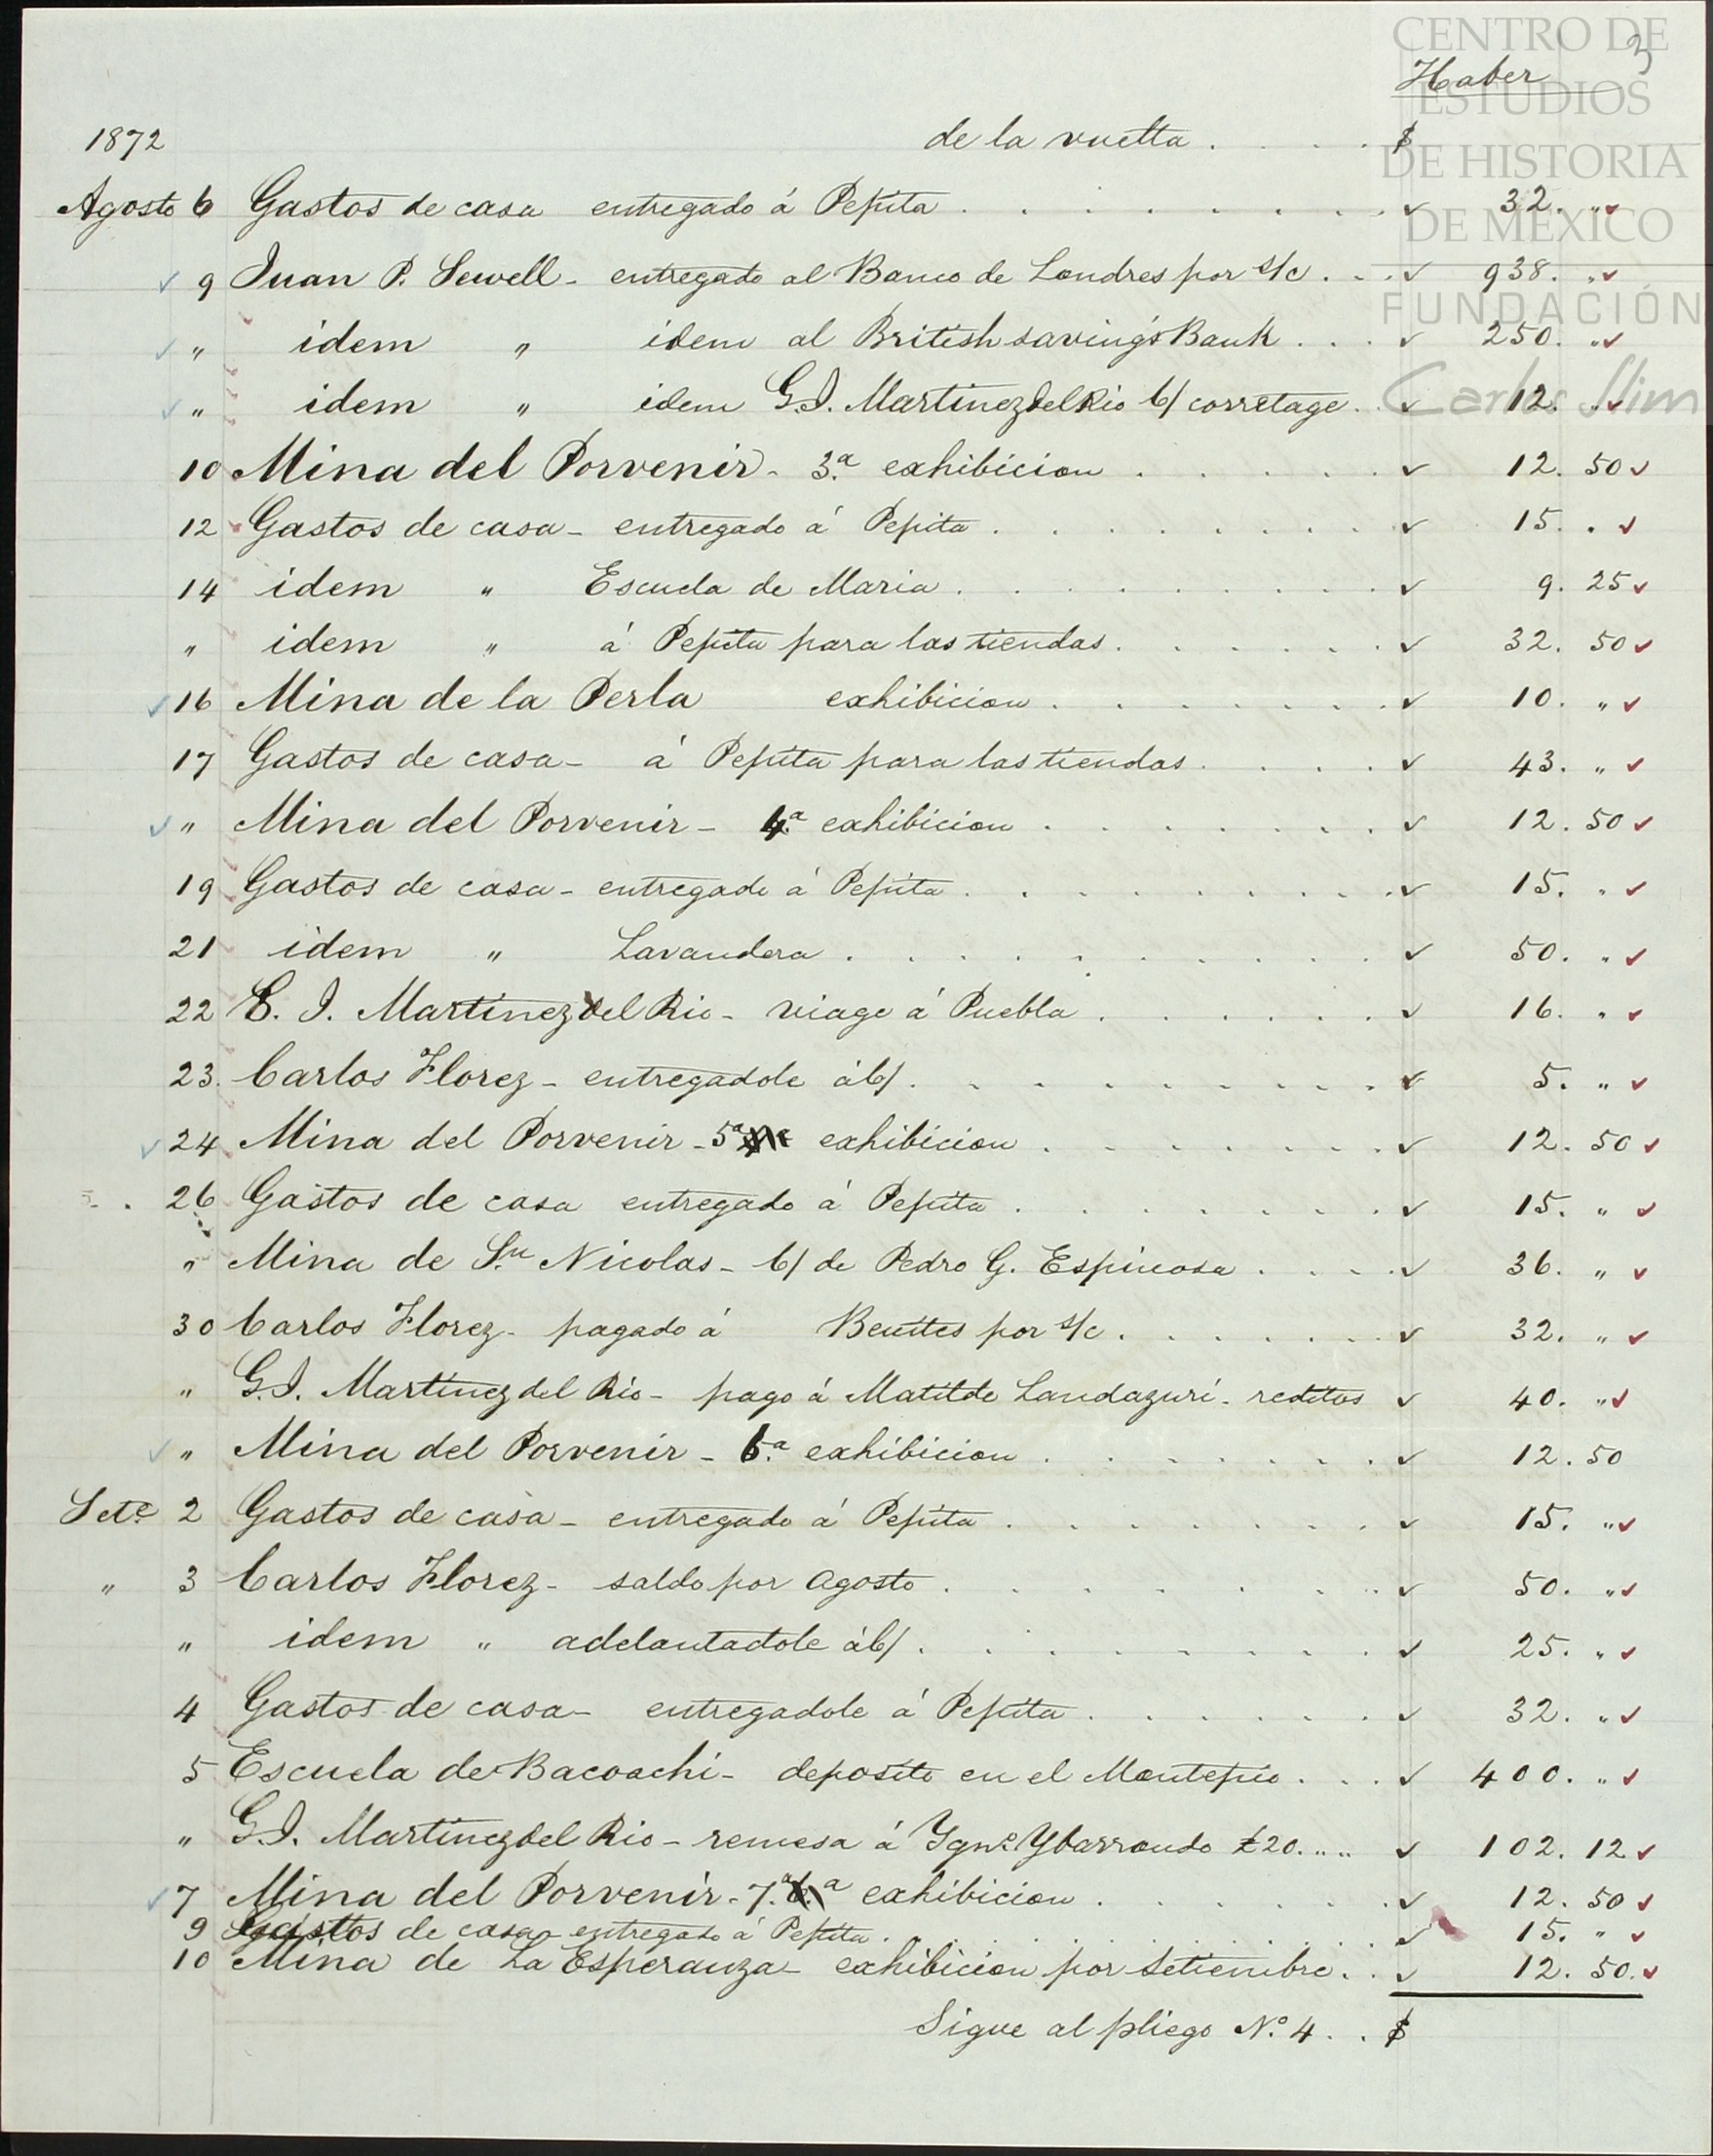 CENTRO DE
ESTUDIOS
DE HISTORIA
DE MÉXICO
FUNDACIÓN
Carlos Slim
3
Haber
1872 de la vuelta . . . . $
Agosto 6 Gastos de casa entregado á Pepita . . . . . . . . 32. "
9 Juan P. Sewell - entregado al Banco de Londres por s/c . . . 938. "
" idem " idem al British saving's Bank . . . 250. "
" idem " idem G.I. Martinez del Rio C/ corretage . . 12. "
10 Mina del Porvenir - 3.ª exhibicion . . . . . 12. 50
12 Gastos de casa - entregado á Pepita . . . . . . . . 15. .
14 idem " Escuela de Maria . . . . . . . . 9. 25
" idem " á Pepita para las tiendas . . . . . . 32. 50
16 Mina de la Perla exhibicion . . . . . . . 10. "
17 Gastos de casa - á Pepita para las tiendas . . . . 43. "
" Mina del Porvenir - 4.ª exhibicion . . . . . . . 12. 50
19 Gastos de casa - entregado á Pepita . . . . . . . . 15. "
21 idem " Lavandera . . . . . . . . . . 50. "
22 . I. Martinez del Rio - viage á Puebla . . . . . . 16. "
23. Carlos Florez - entregadole á C/ . . . . . . . . . 5. "
24 Mina del Porvenir - 5ª exhibicion . . . . . . . 12. 50
26 Gastos de casa entregado á Pepita . . . . . . . 15. "
" Mina de Sn. Nicolas - C/ de Pedro G. Espinosa . . . . 36. "
30 Carlos Florez - pagado á Benites por s/c . . . . . . . 32. "
" G.I. Martinez del Rio - pago á Matilde Landazuri - reditos 40. "
" Mina del Porvenir - 6.ª exhibicion . . . . . . . 12. 50
Sete. 2 Gastos de casa - entregado á Pepita . . . . . . . 15. "
" 3 Carlos Florez - saldo por Agosto . . . . . . . . 50. "
" idem " adelantadole á C/ . . . . . . . . . 25. "
4 Gastos de casa - entregadole á Pepita . . . . . . 32. "
5 Escuela de Bacoachi - deposito en el Montepio . . . 400. "
" G.I. Martinez del Rio - remesa á Ygno. Ybarrondo £20. " " 102. 12
7 Mina del Porvenir - 7.ª exhibicion . . . . . . 12. 50
9 Gastos de casa - entregado á Pepita . . . . . . . . . 15. "
10 Mina de La Esperanza - exhibicion por Setiembre . . 12. 50.
Sigue al pliego N.º 4 . . $